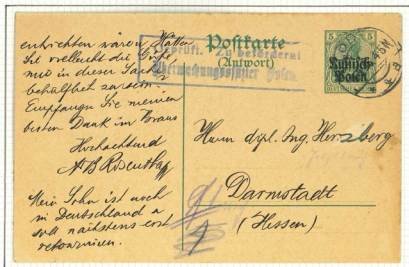 entrichten wären. Hätten
Sie vielleicht die Güte
mir in dieser Sache
behülflich zu sein.
Empfangen Sie meinen
besten Dank im Voraus
Hochachtend
A B Rosenthal
Mein Sohn ist noch
in Deutschland u
soll nächstens erst
retournieren.
Postkarte
(Antwort)
Geprüft. Zu befördern!
Überwachungsoffizier Polen.
5 5
Russisch-
Polen
Herrn dipl. Ing. Herzberg
Darmstadt
(Hessen)